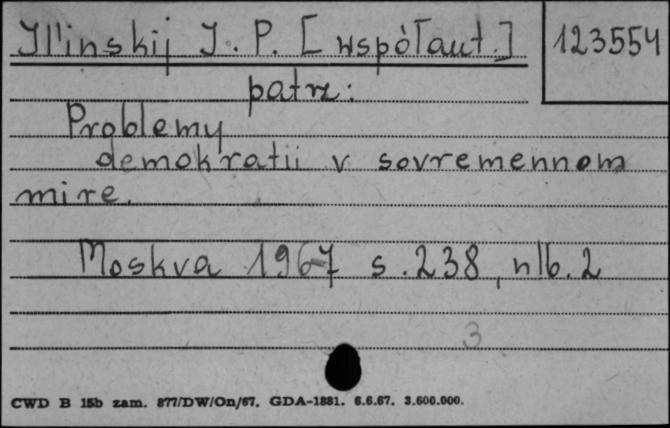 Il'inskij I. P. [współaut.] 123554
patrz:
Problemy
demokratii v sovremennom
mire.
Moskva 1967 s. 238, nlb. 2
3
CWD B 15b zam. 877/DW/On/67. GDA-1881. 6.6.67. 3.600.000.